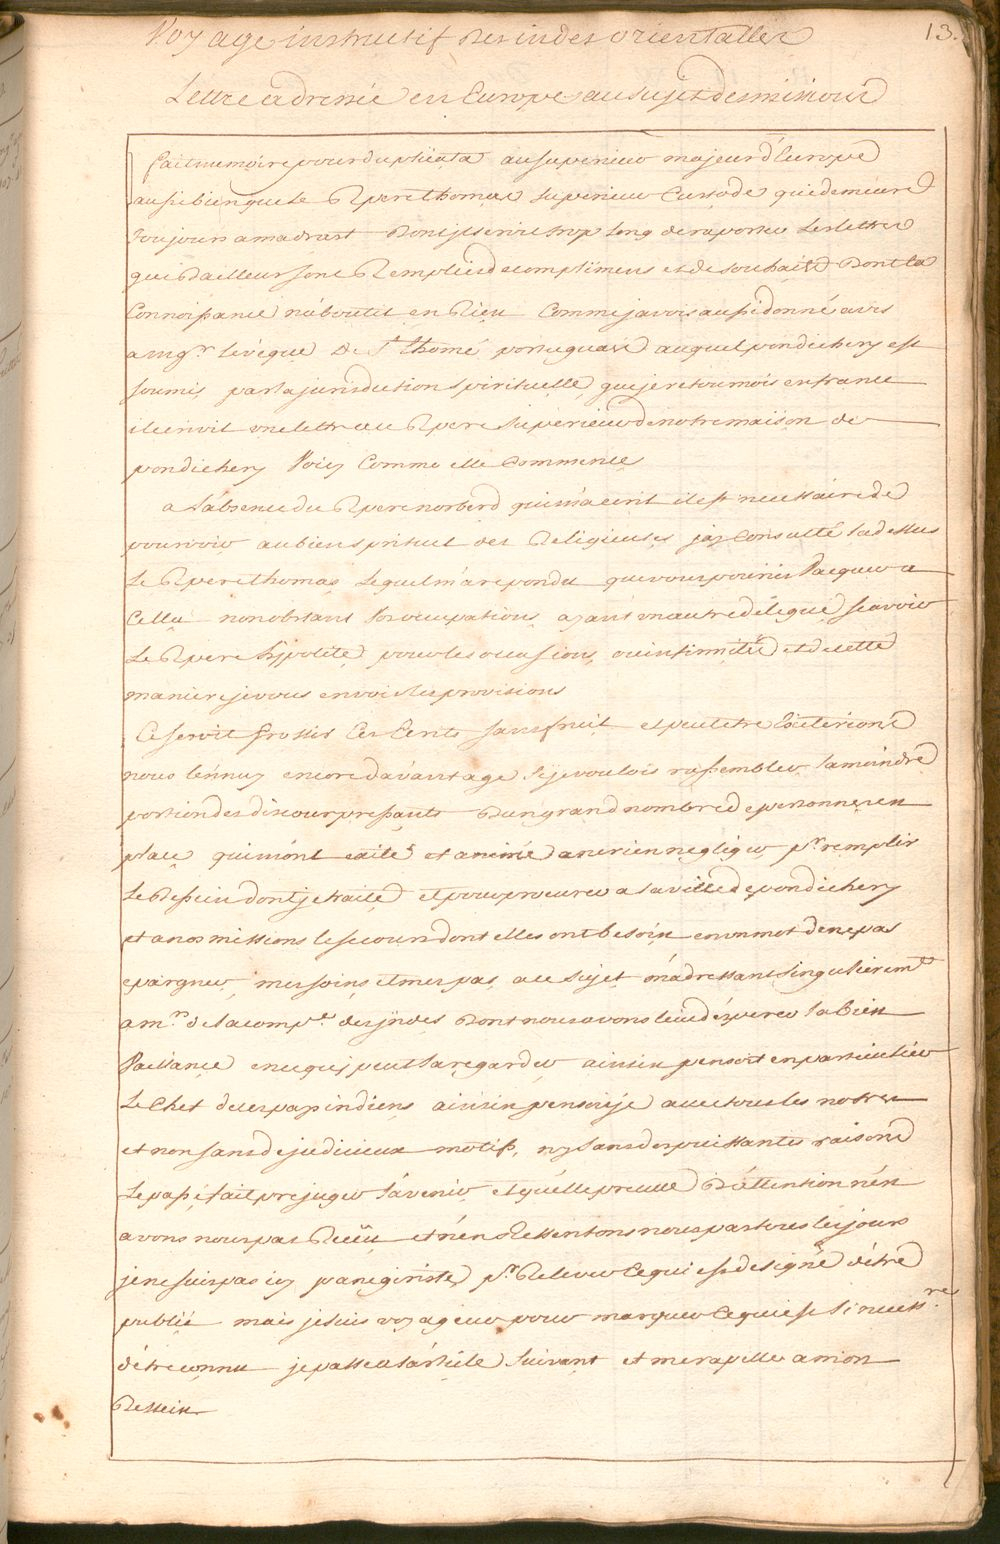 Voyage instructif des indes orientalles
13.
Lettre adressée en Europe au sujet des missions
fait memoire pour duplicata au superieur majeur d'Europe
aussi bien que le R pere thomas superieur Custode qui demeure
toujours a madrast dont je serois trop long de raporter les lettres
qui d'ailleurs sont Remplies de complimens et de souhaits dont la
Connoissance n'aboutit en Rien Comme j'avois aussi donné avis
a mgr. levêque De St thomé portuguais auquel pondichery est
soumis par la jurisdiction spirituelle, que je retournois en france
il ecrivit une lettre au R pere Superieur de notre maison de
pondichery Voicy Comme elle Commence
a l'absence du R pere norberd qui m'a ecrit il est necessaire de
pourvoir au bien spirituel des Religieuses j'ay Consulté la dessus
Le R pere thomas, lequel m'a repondu que vous pouriés Vacquer a
Cella nonobstant Vos occupations, ayant un autre délégué scavoir
Le R pere hypolite, pour les occasions, ou infirmités et de cette
maniere je vous envois les provisions
Ce seroit grossir Ces Ecrits sans fruit et peut etre
nous l'ennuy encore d'avantage si je voulois rassembler la moindre
portion des discours pressants d'un grand nombre de personnes en
place qui m'ont et animé a ne rien negliger pr. remplir
Le Dessein dont je traite et pour procurer a la ville de pondichery
et a nos missions le secours dont elles ont besoin en un mot de ne pas
epargner mes soins et mes pas, a ce sujet m'adressant singulieremt
a mrs. de la compe. des jndes dont nous avons lieu d'esperer la Bien
Veillance en ce qui peut la regarder ainsin pensoit en particulier
Le Chef de ces pays indiens ainsin pensois je avec tous les notres
et non sans de judicieux motifs, ny sans de puissantes raisons
Le passé fait prejuger l'avenir et quelle preuve D'attention n'en
avons nous pas Reçeu et n'en Ressentons nous pas tous les jours
je ne suis pas icy panegiriste, pr. Relever Ce qui est designé d'etre
publié mais je suis voyageur pour marquer Ce qui est si necessre.
d'etre connu je passe a l'article suivant et me rapelle a mon
Dessein